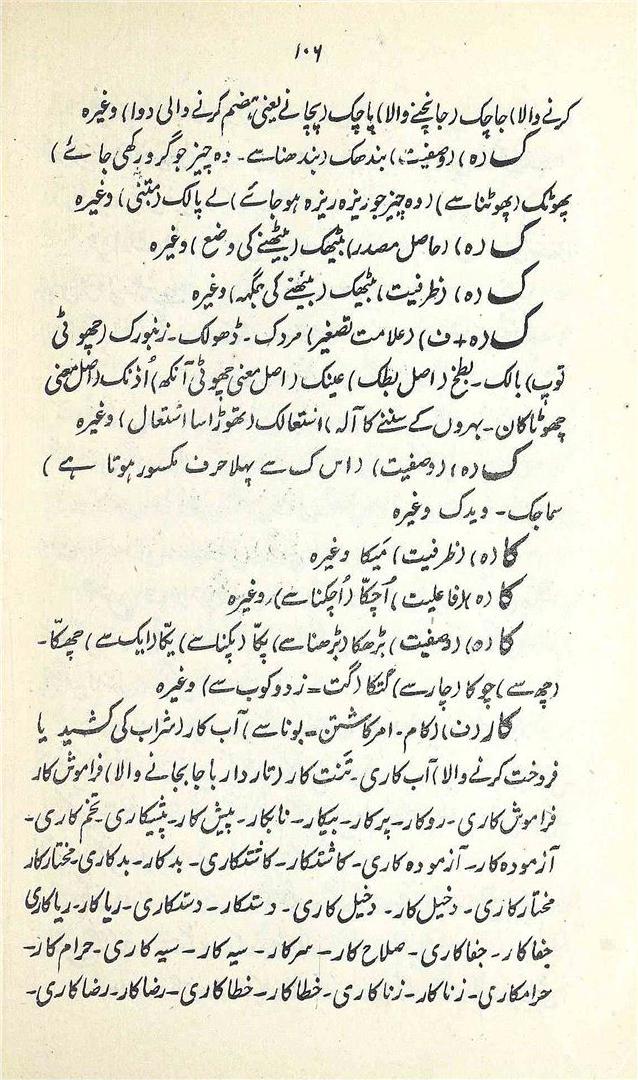 ۱۰۶
کرنے والا) جاچک (جانچنے والا) پاچک (پچانے یعنی ہضم کرنے والی دوا) وغیرہ
ک (ہ) (وصفیت) بندھک (بندھنا سے۔ وہ چیز جو گرو رکھی جائے)
پھوٹک (پھوٹنا سے) (وہ چیز جو ریزہ ریزہ ہو جائے) لے پالک (متبنٰی) وغیرہ
ک (ہ) (حاصل مصدر) بیٹھک (بیٹھنے کی وضع) وغیرہ
ک (ہ) (ظرفیت) بیٹھک (بیٹھنے کی جگہ) وغیرہ
ک (ہ + ف) (علامت تصغیر) مردک۔ ڈھولک۔ زنبورک (چھوٹی
توپ) بالک۔ بطخ (اصل بطک) عینک (اصل معنی چھوٹی آنکھ) اُذنک (اصل معنی
چھوٹا کان۔ بہروں کے سننے کا آلہ) استعالک (تھوڑا سا اشتعال) وغیرہ
ک (ہ) (وصفیت) (اس ک سے پہلا حرف مکسور ہوتا ہے)
سماجک۔ ویدک وغیرہ
کا (ہ) (ظرفیت) مَیکا وغیرہ
کا (ہ) (فاعلیت) اُچکّا (اُچکنا سے) وغیرہ
کا (ہ) (وصفیت) بڑھکا (بڑھنا سے) پکّا (پکنا سے) یکّا (ایک سے) چھکّا۔
(چھ سے) چوکا (چار سے) گتکا (گت = زدوکوب سے) وغیرہ
کار (ف) (کام۔ امر کاشتن = بونا سے) آب کار (شراب کی کشید یا
فروخت کرنے والا) آب کاری۔ تنت کار (تاردار باجا بجانے والا) فراموش کار
فراموش کاری۔ روکار۔ پرکار۔ بیکار۔ نابکار۔ پیش کار۔ پیشکاری۔ تخم کاری۔
آزمودہ کار۔ آزمودہ کاری۔ کاشتکار۔ کاشتکاری۔ بدکار۔ بدکاری۔ مختار کار
مختار کاری۔ دخیل کار۔ دخیل کاری۔ دستکار۔ دستکاری۔ ریا کار۔ ریا کاری
جفا کار۔ جفا کاری۔ صلاح کار۔ سرکار۔ سیہ کار۔ سیہ کاری۔ حرام کار۔
حرامکاری۔ زنا کار۔ زنا کاری۔ خطا کار۔ خطا کاری۔ رضا کار۔ رضا کاری۔